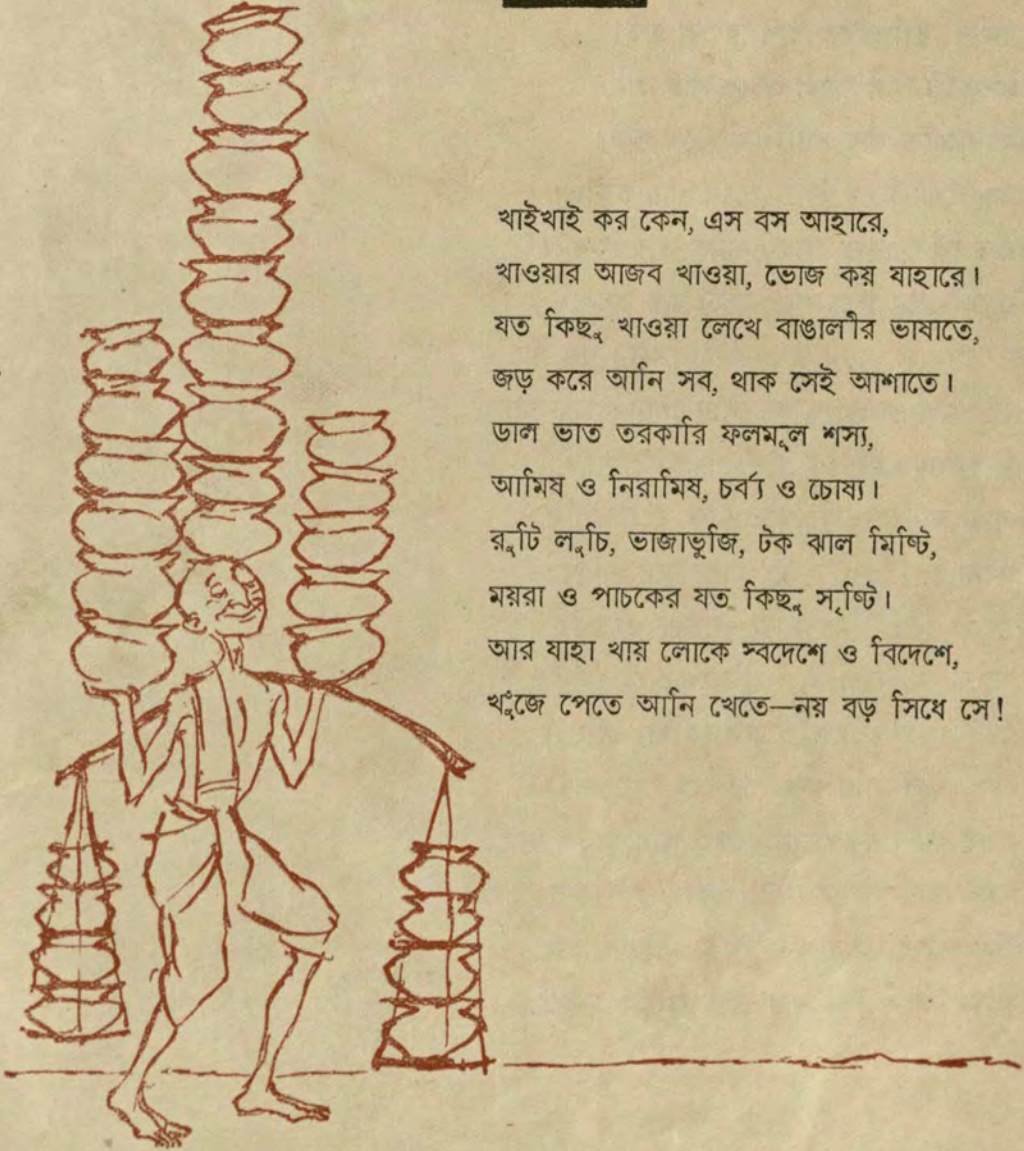 খাইখাই কর কেন, এস বস আহারে,
খাওয়ার আজব খাওয়া, ভোজ কয় যাহারে।
যত কিছু খাওয়া লেখে বাঙালীর ভাষাতে,
জড় করে আনি সব, থাক সেই আশাতে।
ডাল ভাত তরকারি ফলমূল শস্য,
আমিষ ও নিরামিষ, চর্ব্য ও চোষ্য।
রুটি লুচি, ভাজাভুজি, টক ঝাল মিষ্টি,
ময়রা ও পাচকের যত কিছু সৃষ্টি।
আর যাহা খায় লোকে স্বদেশে ও বিদেশে,
খুঁজে পেতে আনি খেতে—নয় বড় সিধে সে!